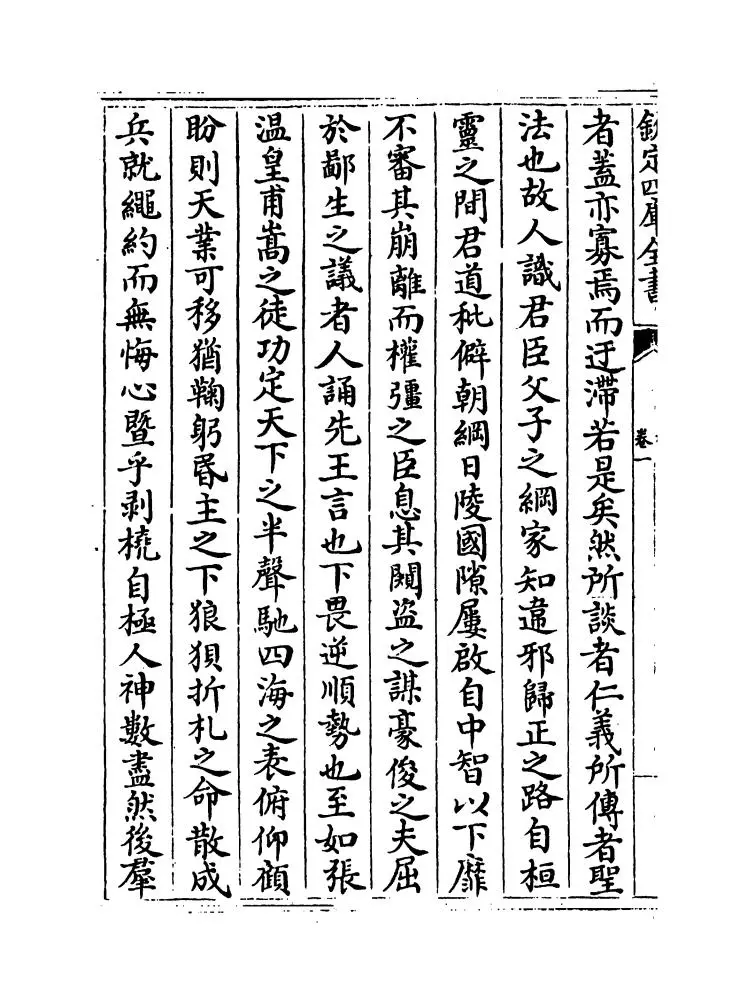 欽定四庫全書
卷一
者蓋亦寡焉而迂滯若是矣然所談者仁義所傳者聖
法也故人識君臣父子之綱家知違邪歸正之路自桓
靈之間君道秕僻朝綱日陵國隙屢啟自中智以下靡
不審其崩離而權彊之臣息其闚盜之謀豪俊之夫屈
於鄙生之議者人誦先王言也下畏逆順勢也至如張
温皇甫嵩之徒功定天下之半聲馳四海之表俯仰顧
盼則天業可移猶鞠躬昬主之下狼狽折札之命散成
兵就繩約而無悔心暨乎剥橈自極人神數盡然後羣